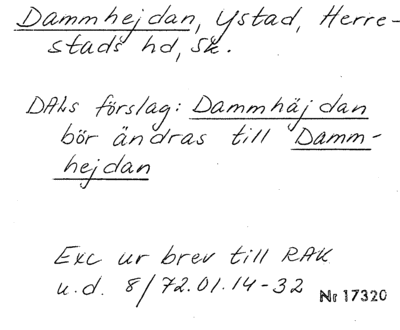 Dammhejdan, Ystad, Herre-
stads hd, Sk.
DALs förslag: Dammhäjdan
bör ändras till Damm-
hejdan
Exc ur brev till RAK
u.d. 8/72.01.14-32 Nr 17320